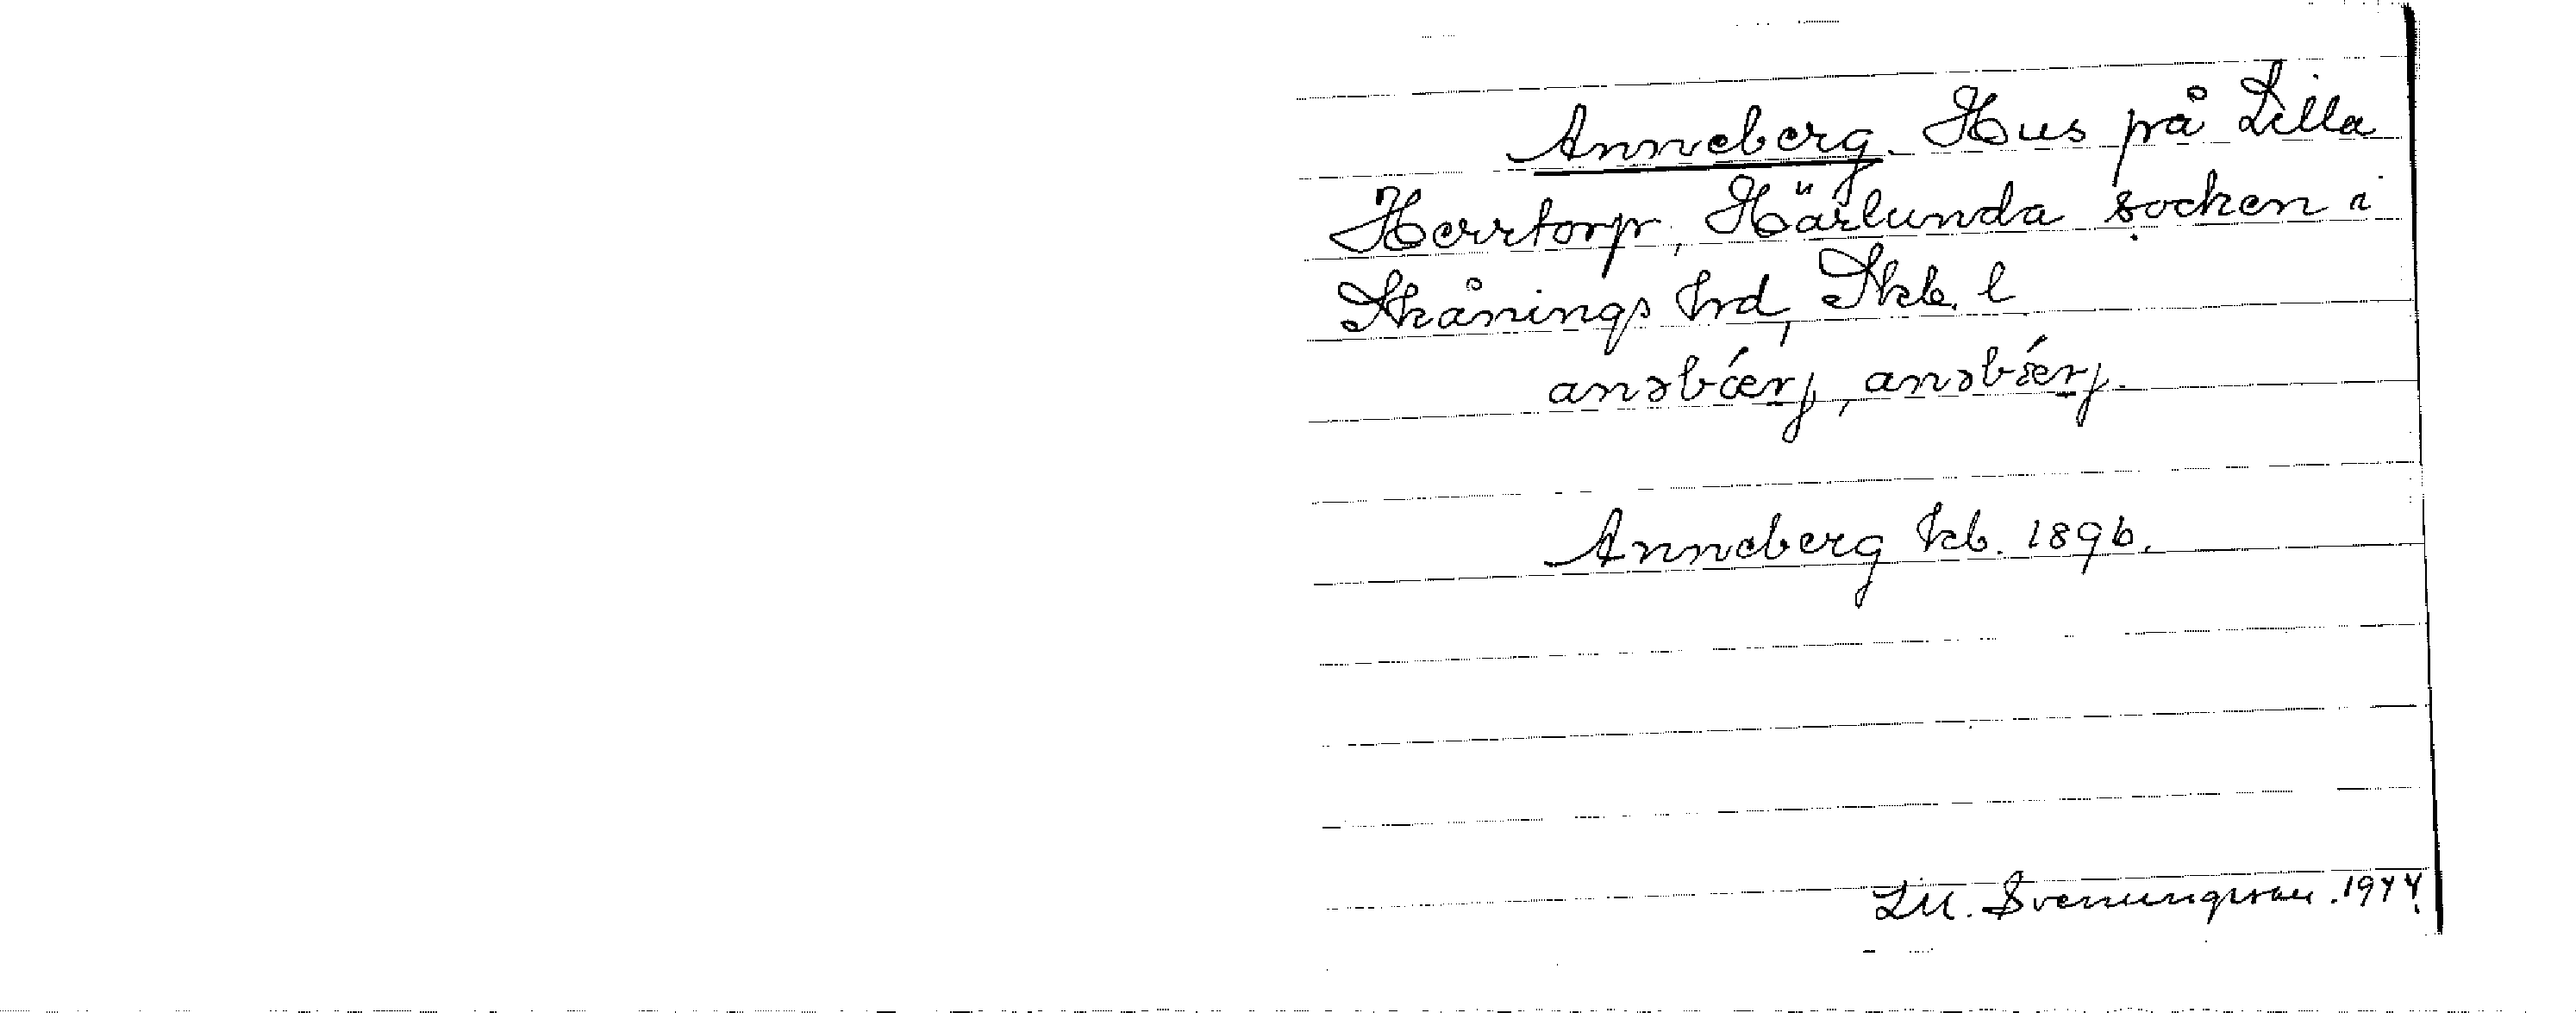 Anneberg. Hus på Lilla
Herrtorp, Härlunda socken i
Skånings hrd, Skb. l
anəbǽrj, anəbǽrj.
Anneberg kb. 1896.
LM. Svenungsson. 1944.